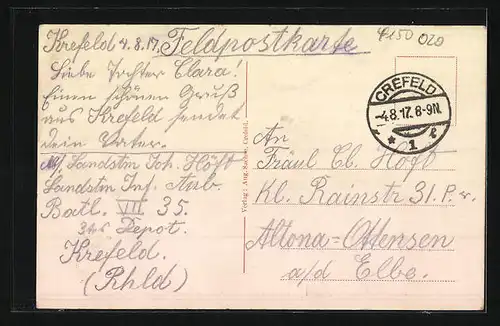 Krefeld 4.8.17. Feldpostkarte
Liebe Tochter Clara!
Einen schönen Gruß
aus Krefeld sendet
dein Vater.
Abs. Landstm Joh. Höft
Landstm Inf.
Batl. VII 35.
3tes Depot.
Krefeld.
(Rhld)
4150 020
CREFELD
-4.8.17. 8-9N.
* 1 f
Verlag: Aug. Crefeld.
An
Fräul Cl. Höft
Kl. Rainstr 31. P. r.
Altona=Ottensen
a/d Elbe.